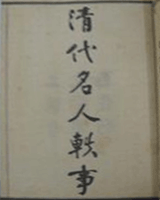 清代名人軼事